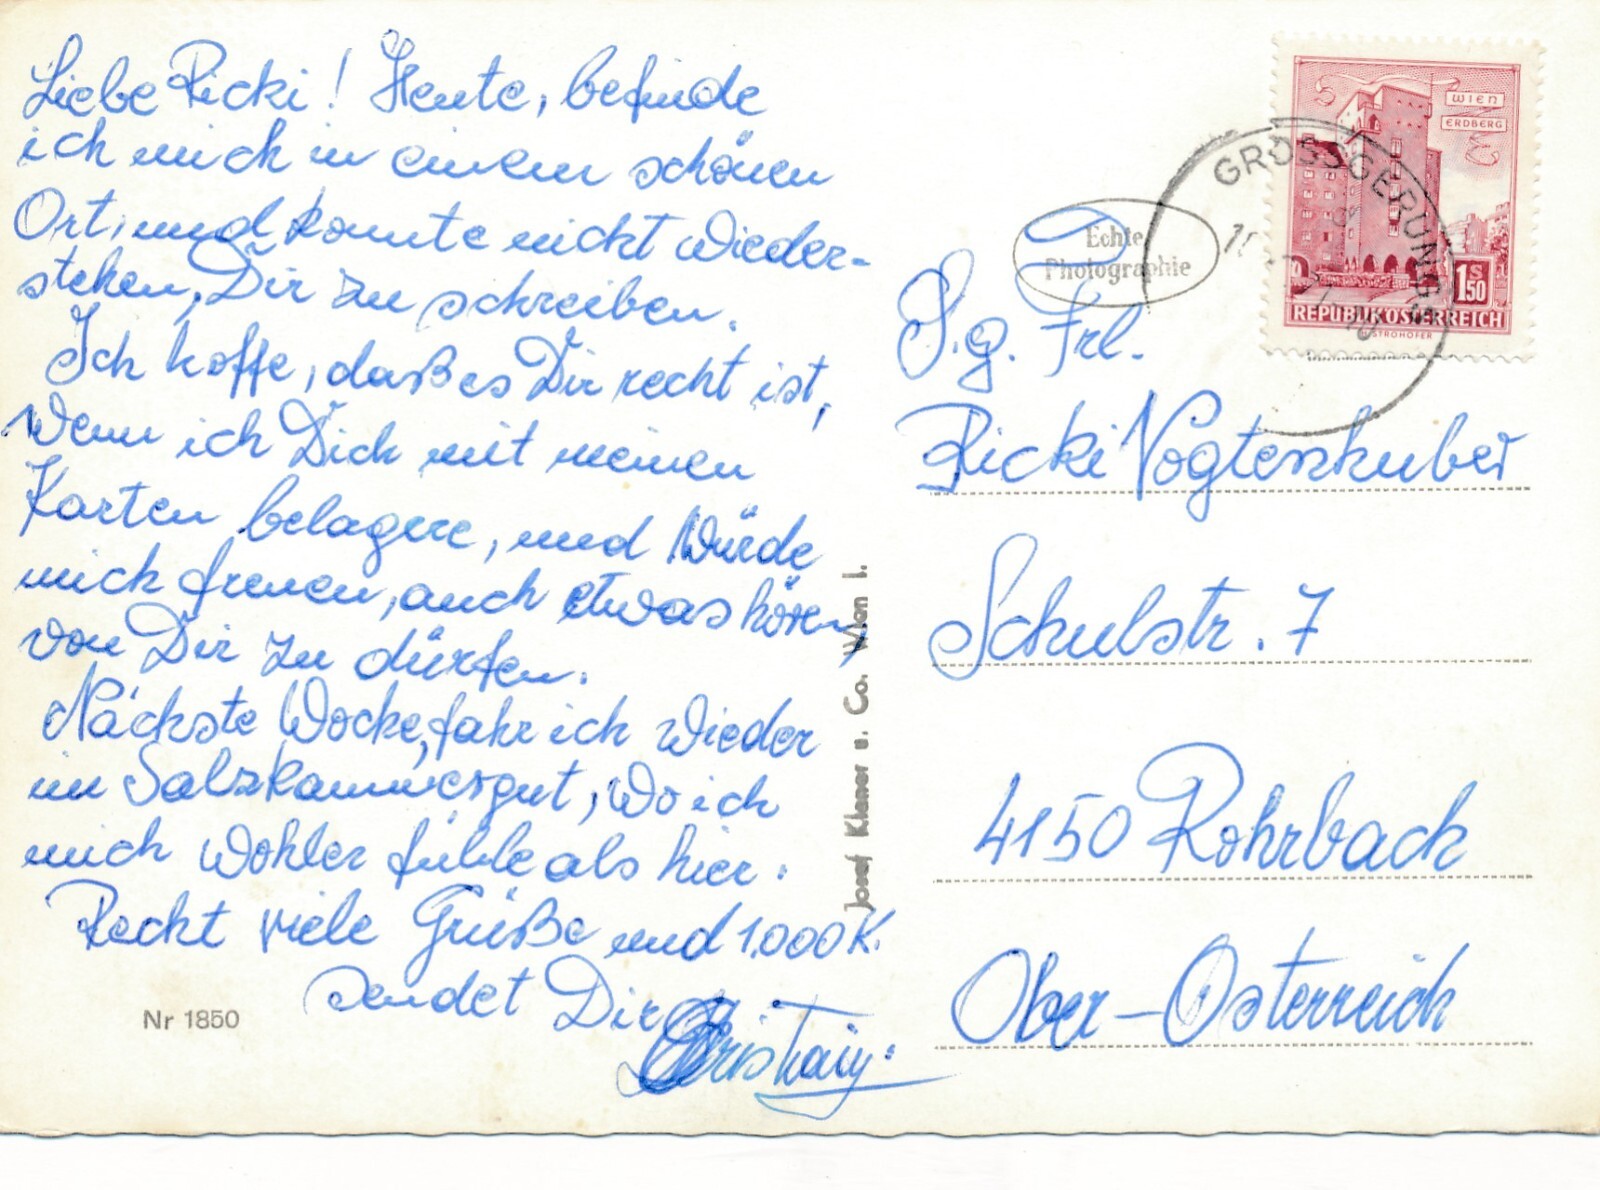 Liebe Ricki! Heute, befinde
ich mich in einem schönen
Ort, und konnte nicht wieder-
stehen, Dir zu schreiben.
Ich hoffe, daß es Dir recht ist,
Wenn ich Dich mit meinen
Karten belagere, und Würde
mich freuen, auch etwas hören,
von Dir zu dürfen.
Nächste Woche, fahr ich wieder
im Salzkammergut, Wo ich
mich wohler fühle als hier.
Recht viele Grüße und 1.000 K.
sendet Dir
Nr 1850
Josef Klemer u. Co. Wien I.
Echte
Photographie
S
WIEN
ERDBERG
1 S 50
REPUBLIK ÖSTERREICH
GROSSGERUNGS
S.g. Frl.
Ricki Vogtenhuber
Schulstr. 7
4150 Rohrbach
Ober-Österreich